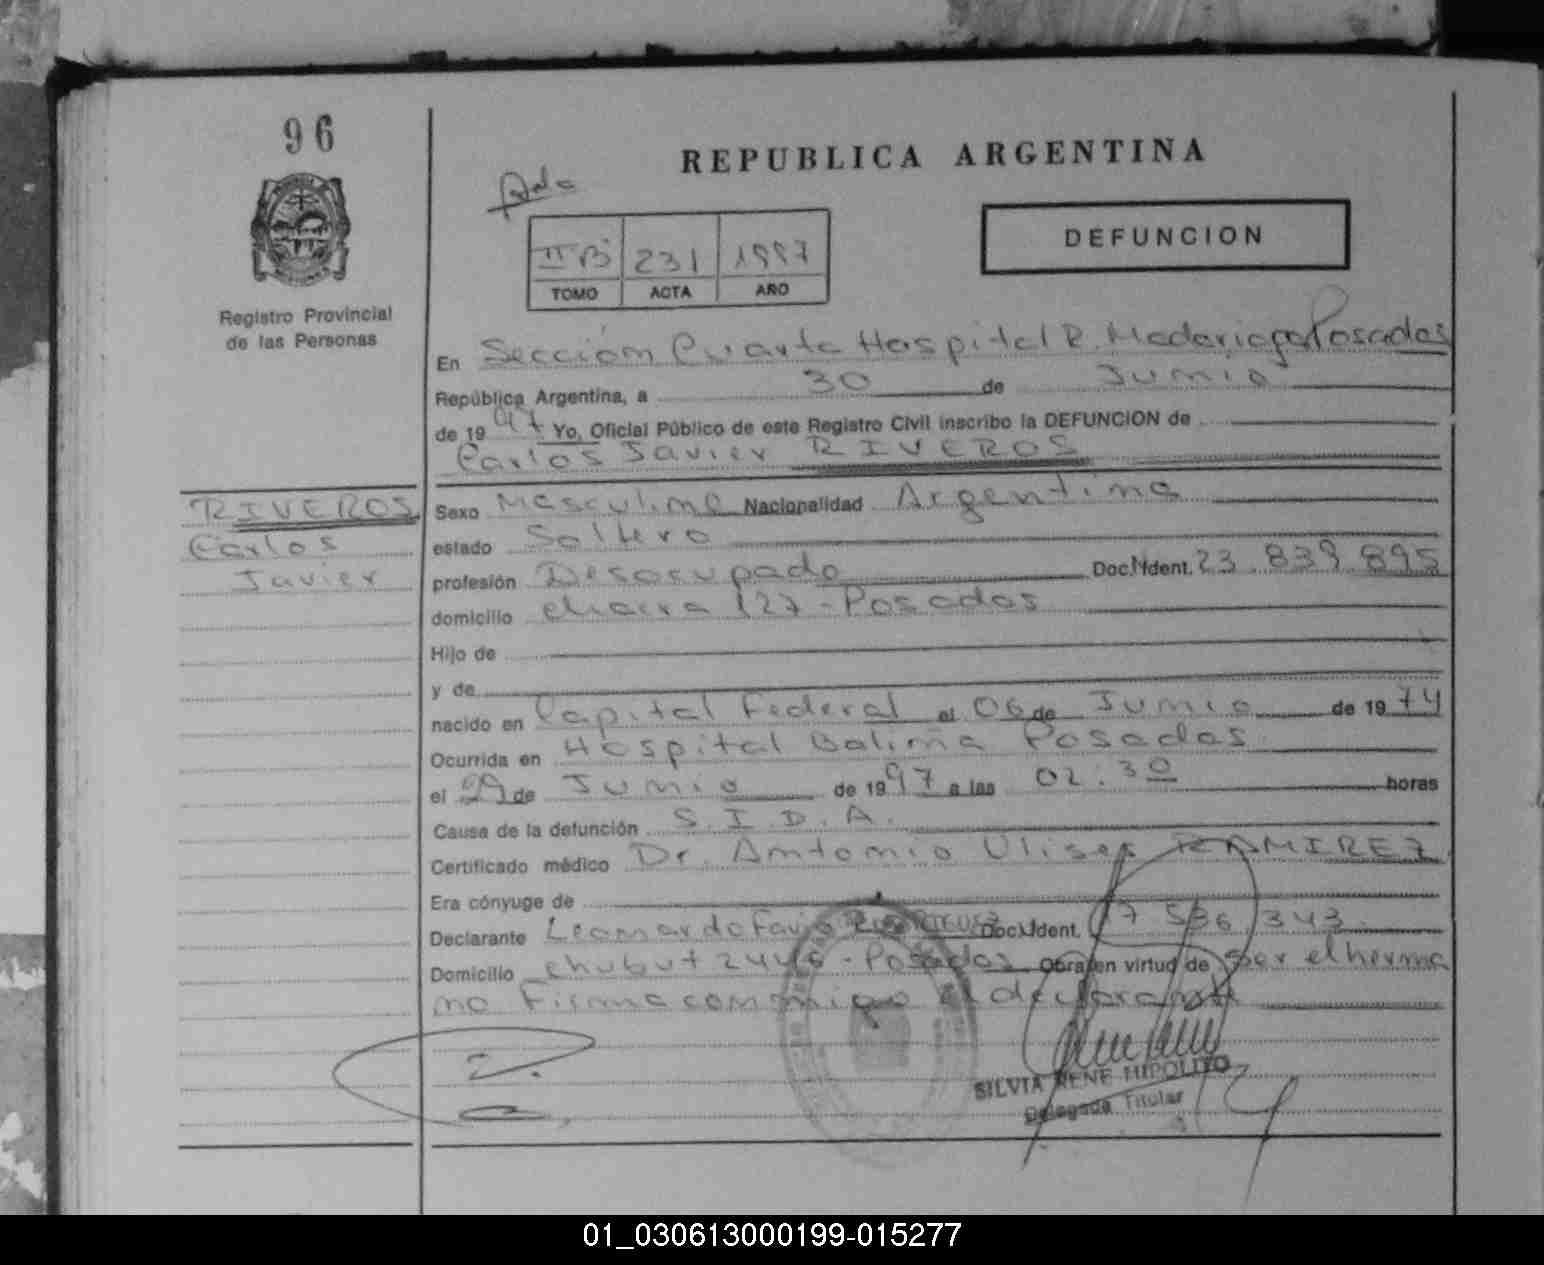 96
REPUBLICA ARGENTINA
Registro Provincial
de las Personas
II B 231 1997
TOMO ACTA AÑO
DEFUNCION
En Sección Cuarta Hospital R. Madariaga Posadas
República Argentina, a 30 de Junio
de 1997 Yo, Oficial Público de este Registro Civil inscribo la DEFUNCION de
Carlos Javier RIVEROS
RIVEROS
Carlos
Javier
Sexo Masculino Nacionalidad Argentina
estado Soltero
profesión Desocupado Doc. Ident. 23.839.895
domicilio chacra 127 - Posadas
Hijo de
y de
nacido en Capital Federal el 06 de Junio de 1974
Ocurrida en Hospital Baliña Posadas
el 29 de Junio de 1997 a las 02:30 horas
Causa de la defunción S.I.D.A.
Certificado médico Dr. Antonio Ulises RAMIREZ
Era cónyuge de
Declarante Leonardo Favio Doc. Ident. 17 536 343
Domicilio chubut - Posadas Obra en virtud de ser el herma
no Firma conmigo el declarante
SILVIA RENE HIPOLITO
Delegada Titular
01_030613000199-015277